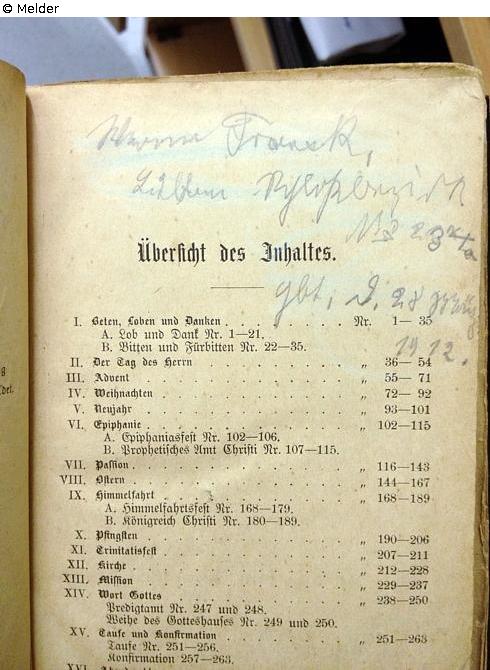 © Melder
Werner Franck,
Lübben Schloßbezirk
gbt. d. 28 März
1912.
Übersicht des Inhaltes.
I. Beten, Loben und Danken . . . . . . . . Nr. 1—35
A. Lob und Dank Nr. 1—21.
B. Bitten und Fürbitten Nr. 22—35.
II. Der Tag des Herrn . . . . . . . . „ 36—54
III. Advent . . . . . . . . „ 55—71
IV. Weihnachten . . . . . . . . „ 72—92
V. Neujahr . . . . . . . . „ 93—101
VI. Epiphanie . . . . . . . . „ 102—115
A. Epiphaniasfest Nr. 102—106.
B. Prophetisches Amt Christi Nr. 107—115.
VII. Passion . . . . . . . . „ 116—143
VIII. Ostern . . . . . . . . „ 144—167
IX. Himmelfahrt . . . . . . . . „ 168—189
A. Himmelfahrtsfest Nr. 168—179.
B. Königreich Christi Nr. 180—189.
X. Pfingsten . . . . . . . . „ 190—206
XI. Trinitatisfest . . . . . . . . „ 207—211
XII. Kirche . . . . . . . . „ 212—228
XIII. Mission . . . . . . . . „ 229—237
XIV. Wort Gottes . . . . . . . . „ 238—250
Predigtamt Nr. 247 und 248.
Weihe des Gotteshauses Nr. 249 und 250.
XV. Taufe und Konfirmation . . . . . . . . „ 251—263
Taufe Nr. 251—256.
Konfirmation 257—263.